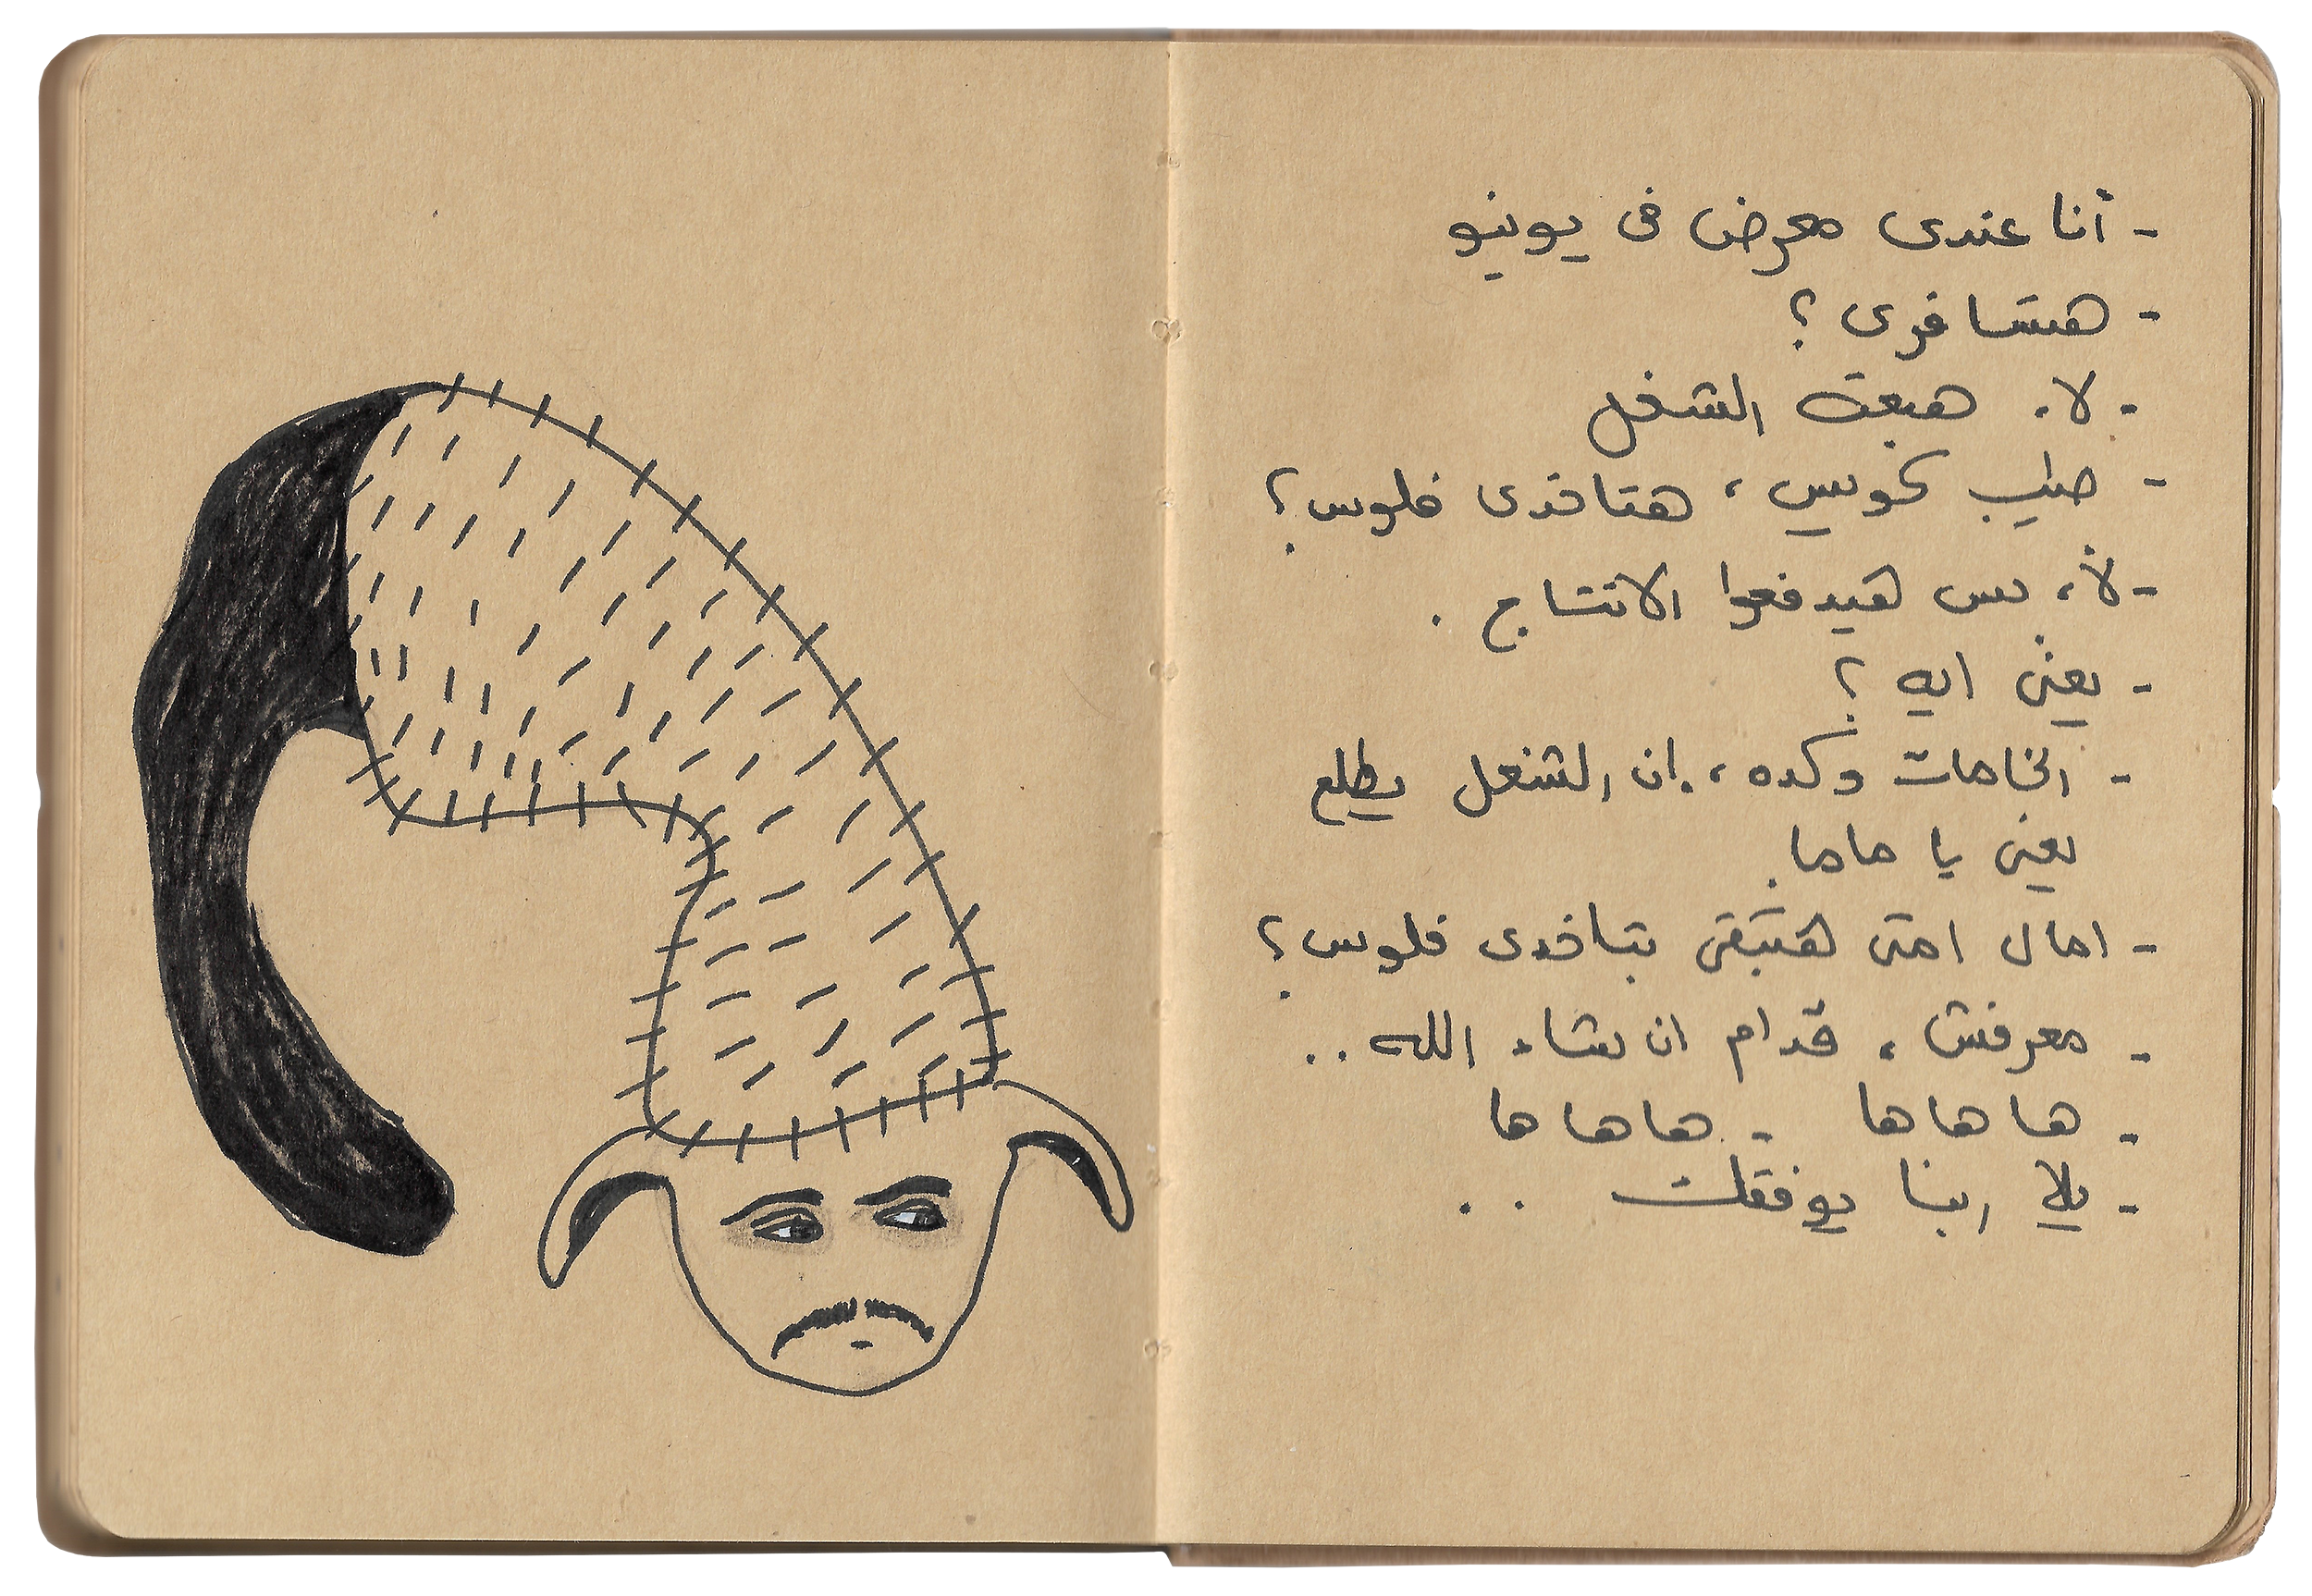 - أنا عندى معرض فى يونيو
- هتسافرى ؟
- لا، هبعت الشغل
- طيب كويس، هتاخدى فلوس؟
- لأ، بس هيدفعوا الانتاج .
- يعنى ايه ؟
- الخامات وكده، إن الشغل يطلع
يعنى يا ماما.
- امال امتى هتبقى بتاخدى فلوس؟
- معرفش، قدام ان شاء الله ..
- هاهاها - هاهاها
- يلا ربنا يوفقك ..